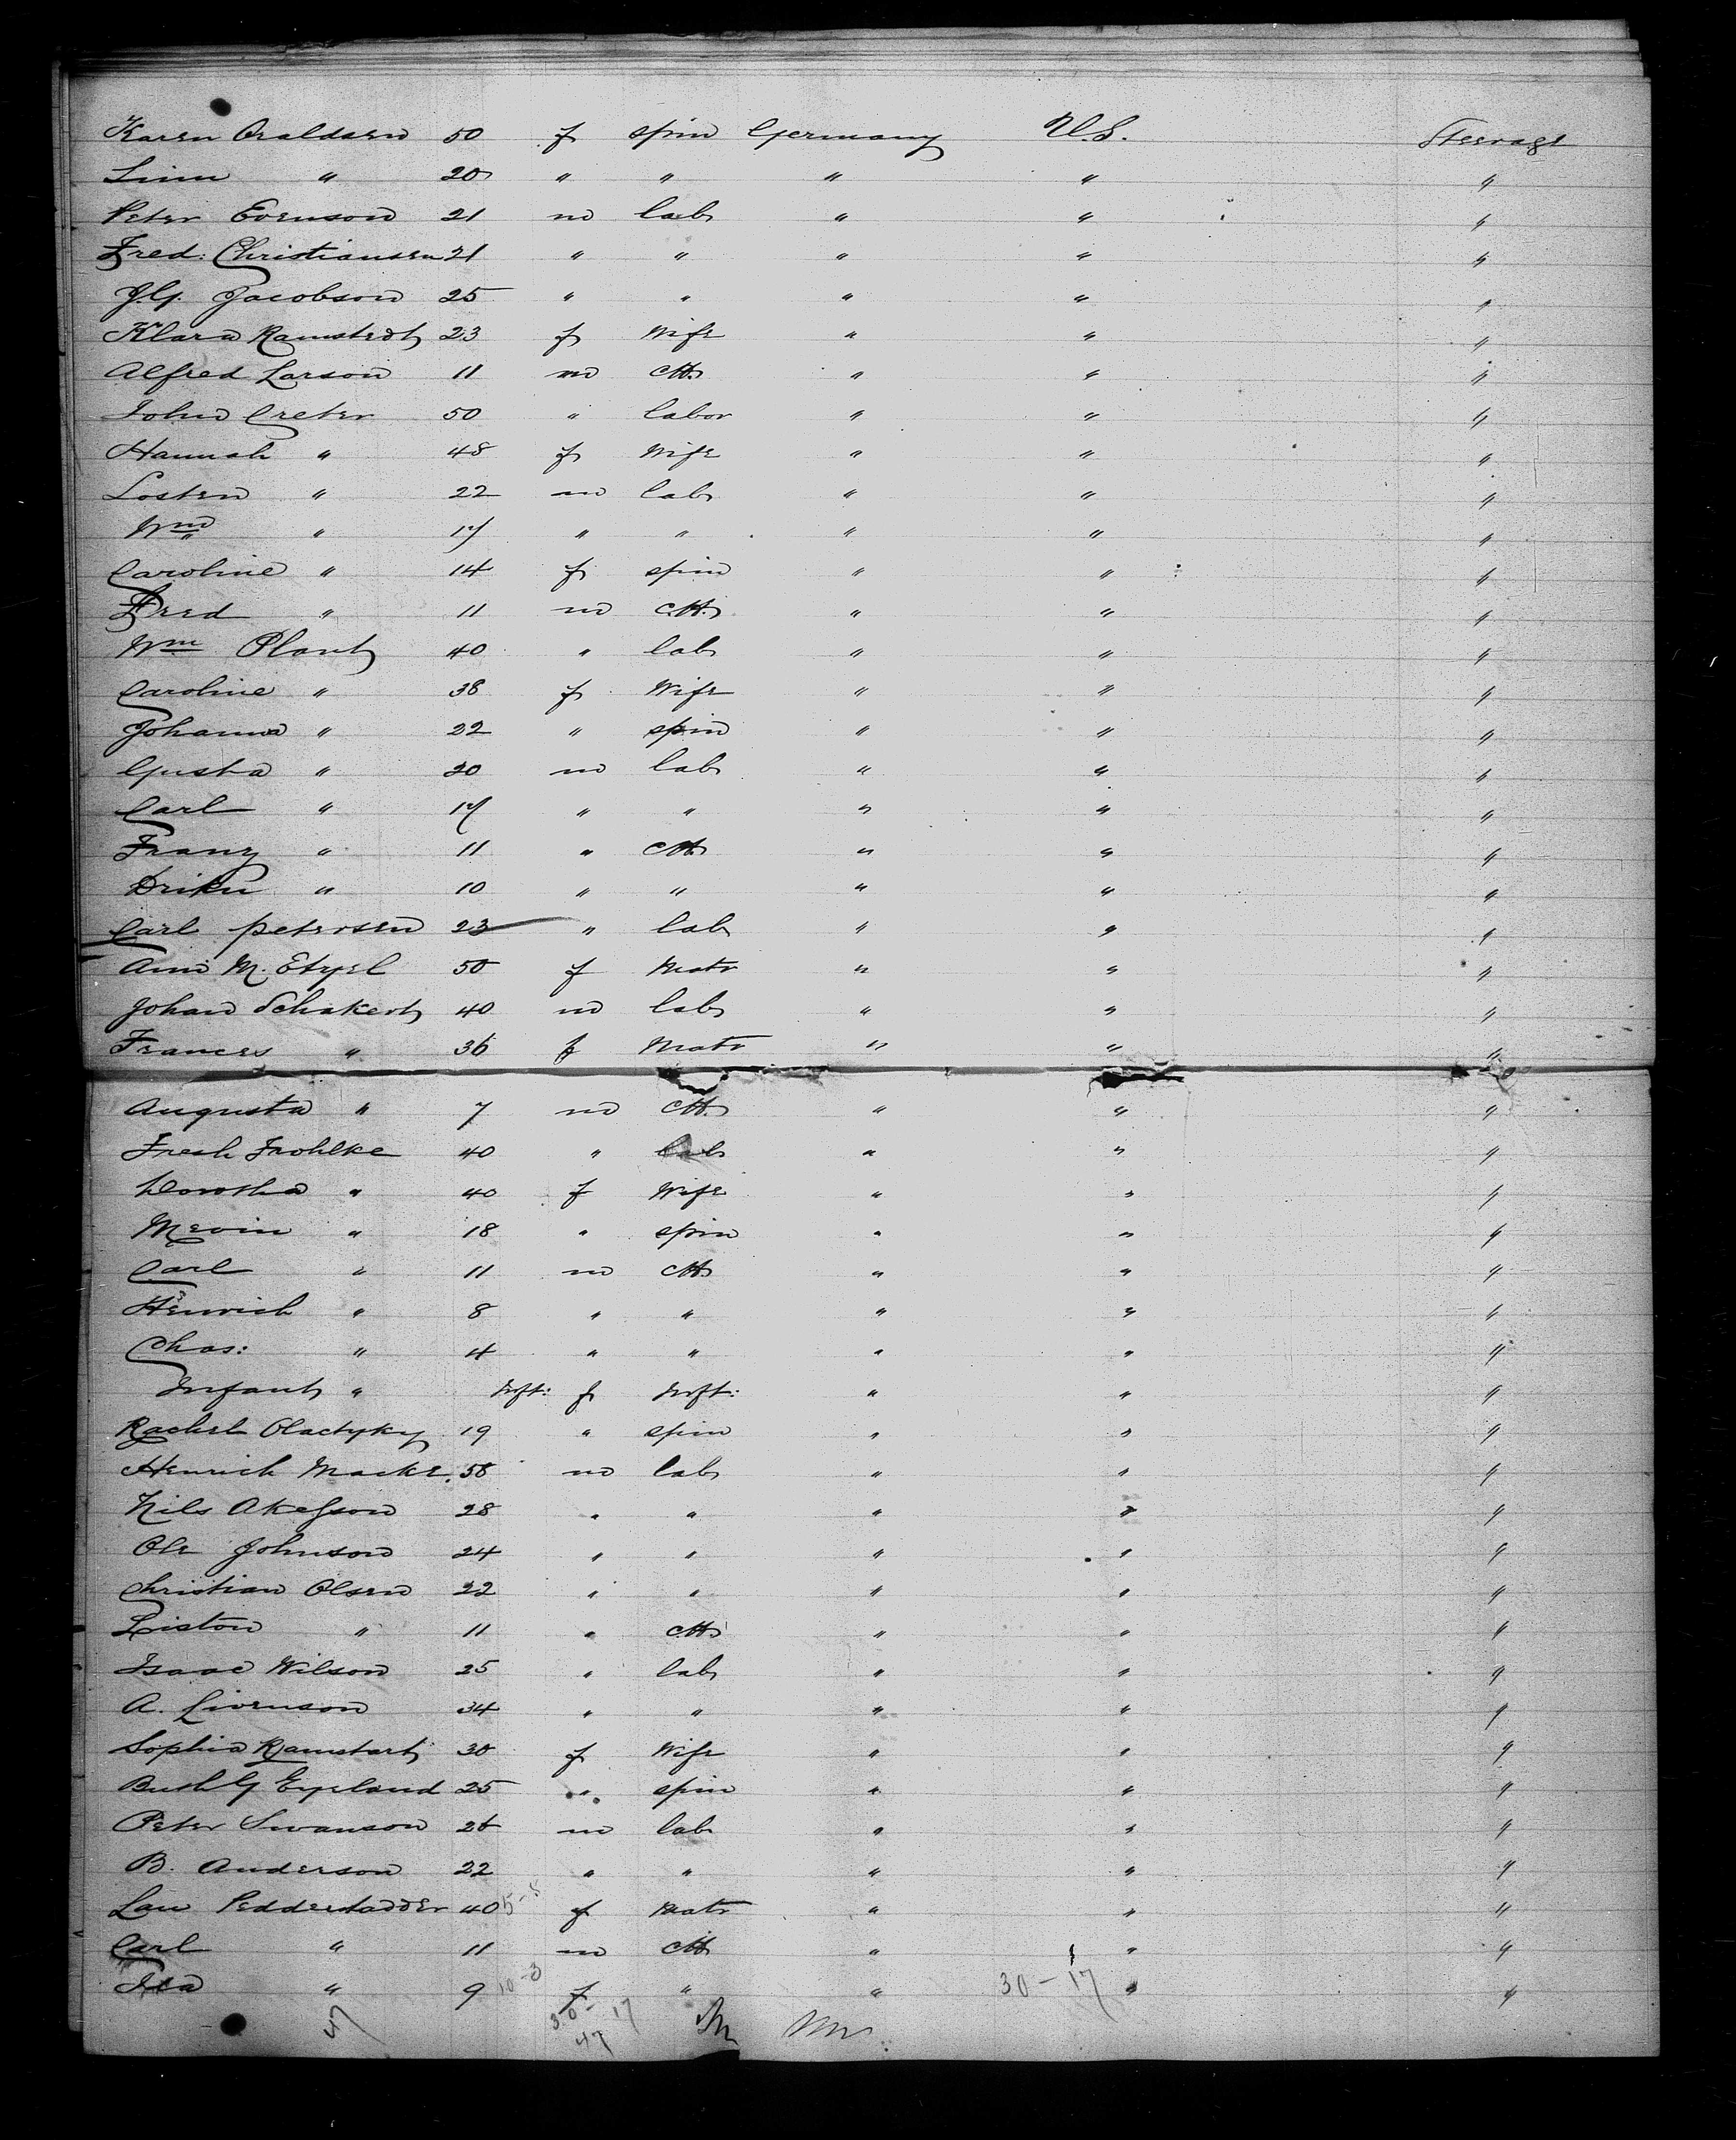 Karen Oraldsen 50 f spin Germany U.S. Steerage
Linn " 20 " " " " "
Peter Evenson 21 m lab " " "
Fred: Christiansen 21 " " " " "
J.G. Jacobson 25 " " " " "
Klara Ramstedt 23 f Wife " " "
Alfred Larson 11 m Ch " " "
John Creter 50 " labor " " "
Hannah " 48 f Wife " " "
Losten " 22 m lab " " "
Wm " 17 " " " " "
Caroline " 14 f spin " " "
Fred " 11 m Ch " " "
Wm Plant 40 " lab " " "
Caroline " 38 f Wife " " "
Johanna " 22 " spin " " "
Gusta " 20 m lab " " "
Carl " 17 " " " " "
Franz " 11 " Ch " " "
" 10 " " " " "
Carl petersen 23 " lab " " "
Ann M. Etzel 50 f Matr " " "
Johan Schakert 40 m lab " " "
Frances " 36 f Matr " " "
Augusta " 7 m Ch " " "
Fresh Frohlke 40 " lab " " "
Dorothea " 40 f Wife " " "
" 18 " spin " " "
Carl " 11 m Ch " " "
Henrich " 8 " " " " "
Chas: " 4 " " " " "
Infant " Inft: f Inft: " " "
Rachel 19 " spin " " "
Henrich Macke 58 m lab " " "
Nils Akesson 28 " " " " "
Ole Johnson 24 " " " " "
Christian Olsen 22 " " " " "
Liston " 11 " Ch " " "
Isaac Wilson 25 " lab " " "
A. Livenson 34 " " " " "
Sophia Ramstart 30 f Wife " " "
25 " spin " " "
Peter Swanson 26 m lab " " "
B. Anderson 22 " " " " "
Lau 40 5-5 f Matr " " "
Carl " 11 m Ch " " "
Ida " 9 10-3 f " " 30-17 " "
47 30-17
47